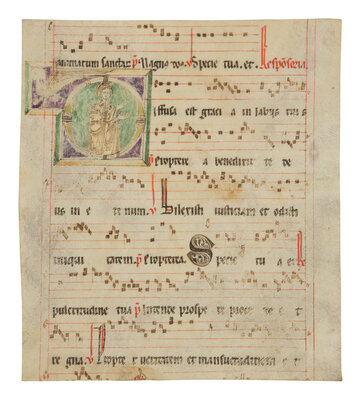 sanctas. ℣ Magno Specie tua. et. Responsoria
iffusa est graci a in labijs tuis
propterea benedixit te de
us in e ter num. ℣ Dilexisti iusticiam et odisti
iniqui tatem. p̄ propterea. Specie tu a et
pulcritudine tua p̄ Intende prospe re procede et
re gna. ℣ Propter ueritatem et mansuetudinem et